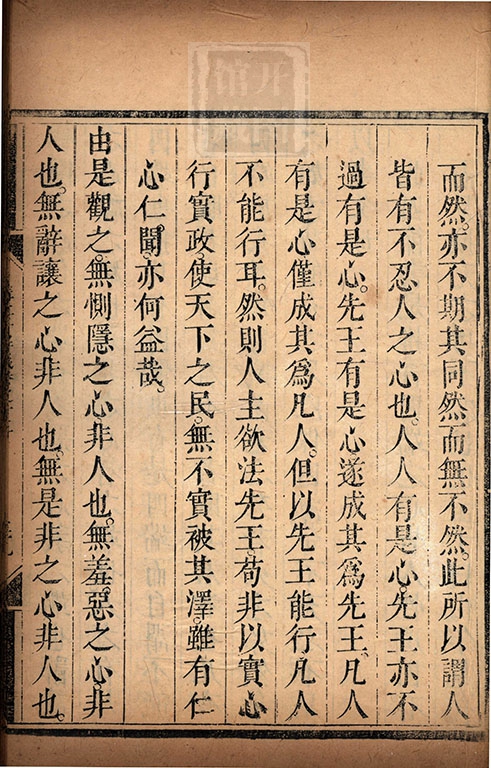 而然。亦不期其同然而無不然。此所以謂人
皆有不忍人之心也。人人有是心。先王亦不
過有是心。先王有是心遂成其爲先王。凡人
有是心僅成其爲凡人。但以先王能行。凡人
不能行耳。然則人主欲法先王。苟非以實心
行實政。使天下之民。無不實被其澤。雖有仁
心仁聞。亦何益哉。
由是觀之。無惻隱之心非人也。無羞惡之心非
人也。無辭讓之心非人也。無是非之心非人也。